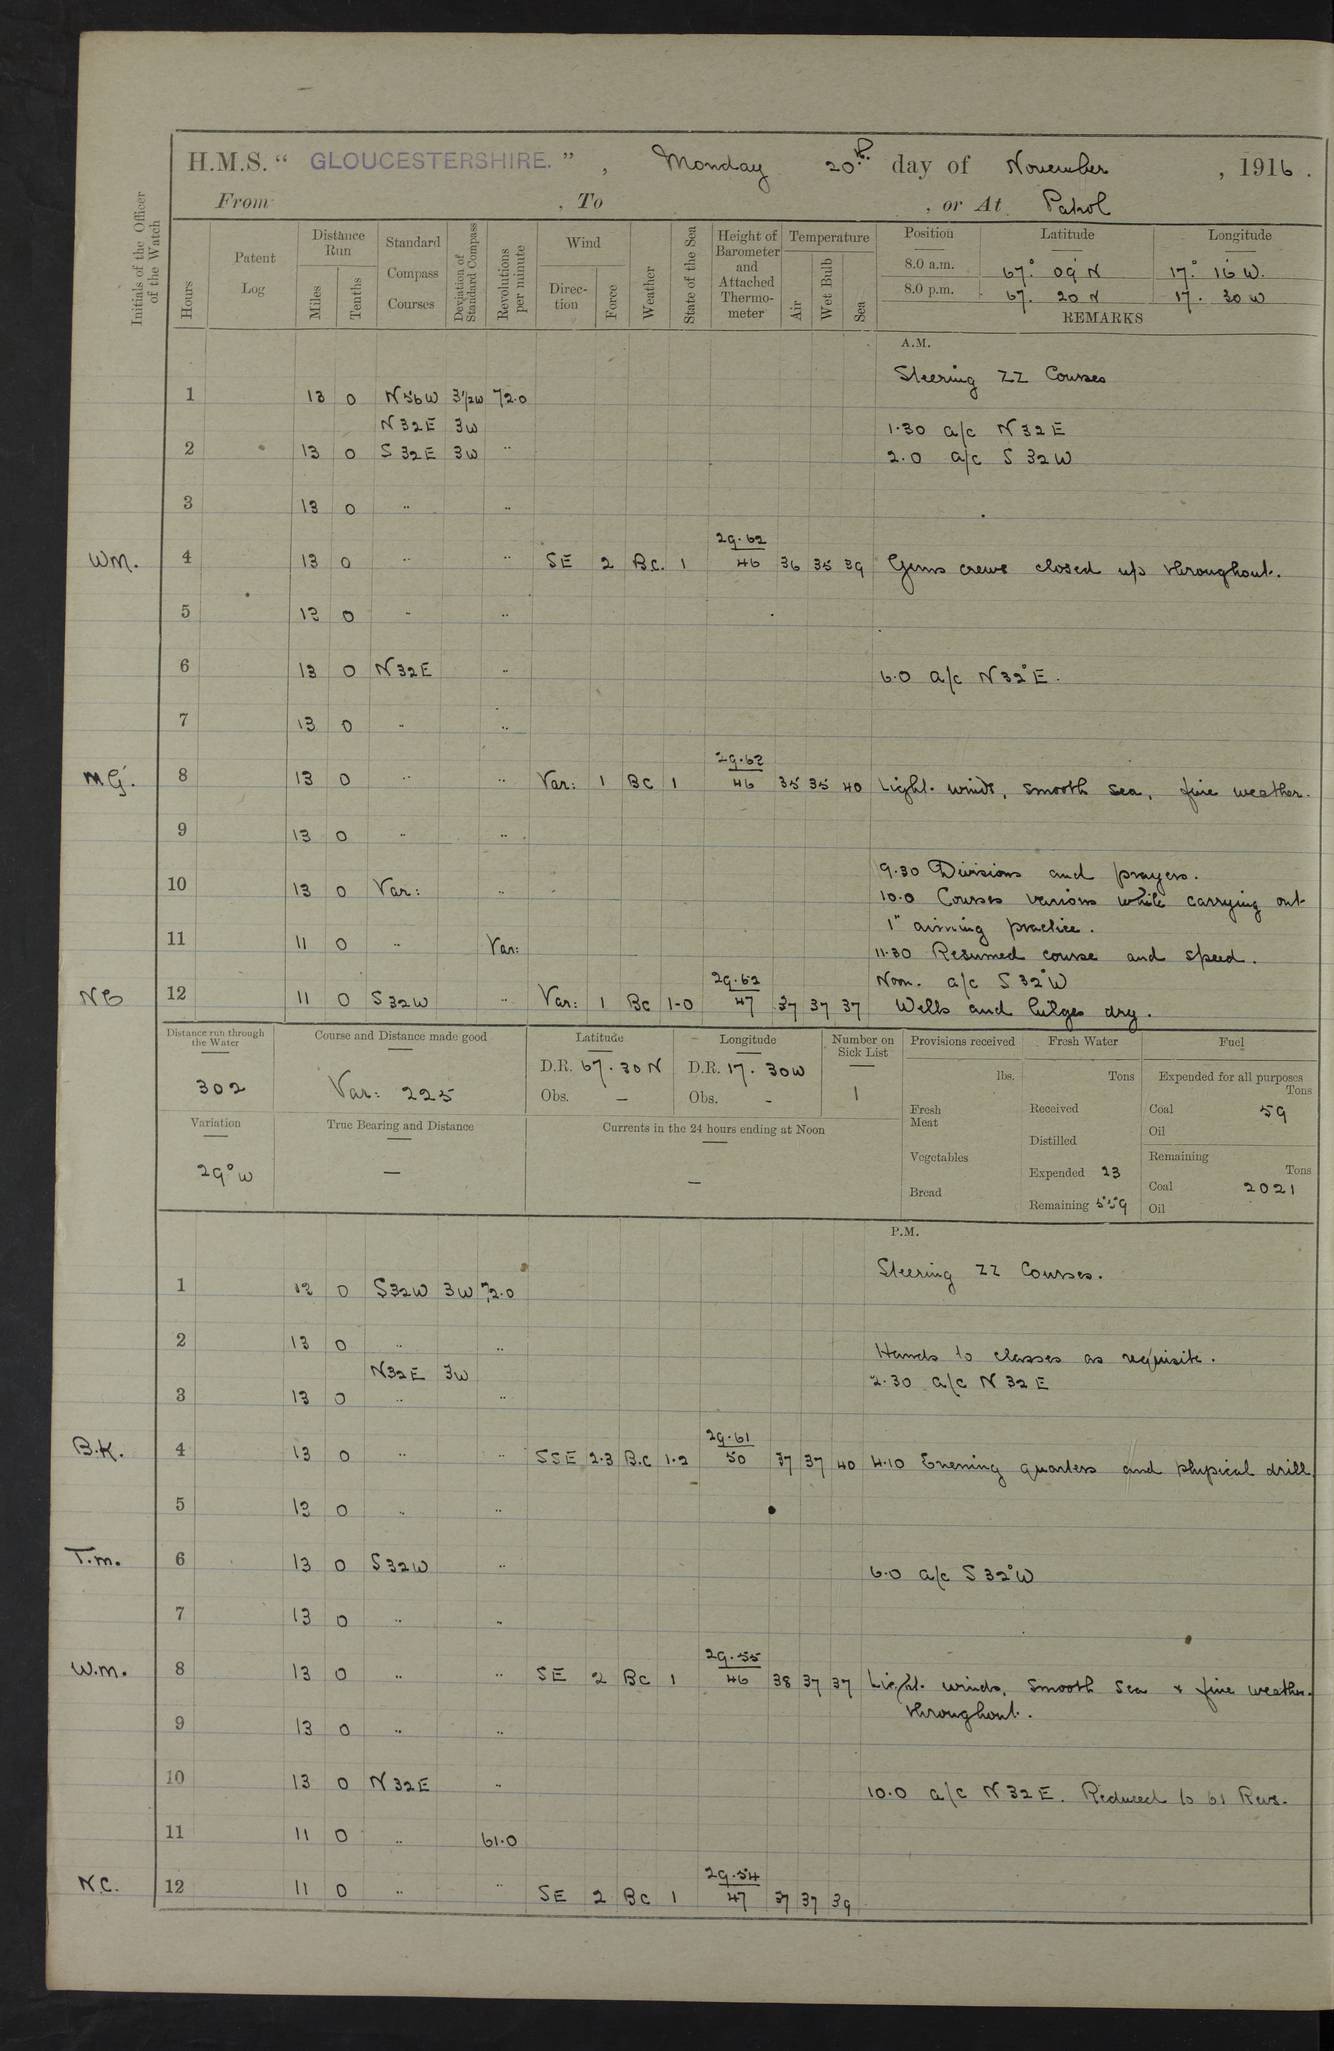 H.M.S. “ GLOUCESTERSHIRE. ” , Monday 20th. day of November , 1916 .
From , To , or At Patrol
Initials of the Officer of the Watch
Hours
Patent Log
Distance Run
Miles
Tenths
Standard Compass Courses
Deviation of Standard Compass
Revolutions per minute
Wind
Direc-tion
Force
Weather
State of the Sea
Height of Barometer and Attached Thermo-meter
Temperature
Air
Wet Bulb
Sea
Position Latitude Longitude
8.0 a.m. 67° 09' N 17° 16' W.
8.0 p.m. 67. 20 N 17. 30 W
REMARKS
A.M.
Steering ZZ Courses
1 13 0 N56W 3½W 72.0
N32E 3W 1.30 a/c N32E
2 13 0 S32E 3W " 2.0 a/c S 32W
3 13 0 " "
29.62
WM. 4 13 0 " " SE 2 BC. 1 46 36 35 39 Guns crews closed up throughout.
5 13 0 " "
6 13 0 N32E " 6.0 a/c N32°E.
7 13 0 " "
29.62
MG. 8 13 0 " " Var: 1 BC 1 46 35 35 40 Light winds, smooth sea, fine weather.
9 13 0 " "
9.30 Divisions and prayers.
10 13 0 Var: " 10.0 Courses various while carrying out
1" aiming practice.
11 11 0 " Var: 11.30 Resumed course and speed.
29.62 Noon. a/c S 32°W
12 11 0 S32W " Var: 1 BC 1-0 47 37 37 37 Wells and bilges dry.
Distance run through the Water
302
Course and Distance made good
Var: 225
Latitude
D.R. 67. 30 N
Obs. —
Longitude
D.R. 17. 30W
Obs. -
Number on Sick List
1
Provisions received
lbs.
Fresh Meat
Vegetables
Bread
Fresh Water
Tons
Received
Distilled
Expended 23
Remaining 559
Fuel
Expended for all purposes
Tons
Coal 59
Oil
Remaining
Tons
Coal 2021
Oil
Variation
29° W
True Bearing and Distance
—
Currents in the 24 hours ending at Noon
—
P.M.
Steering ZZ Courses.
1 12 0 S32W 3W 72.0
2 13 0 " " Hands to classes as requisite.
N32E 3W 2.30 a/c N 32 E
3 13 0 " "
29.61
B.K. 4 13 0 " " SSE 2.3 B.C 1.2 50 37 37 40 4.10 Evening quarters and physical drill
5 13 0 " "
T.M. 6 13 0 S32W " 6.0 a/c S 32°W
7 13 0 " "
29.55
W.M. 8 13 0 " " SE 2 BC 1 46 38 37 37 Light winds, smooth sea & fine weather.
throughout.
9 13 0 " "
10 13 0 N32E " 10.0 a/c N 32 E. Reduced to 61 Revs.
11 11 0 " 61.0
29.54
N.C. 12 11 0 " " SE 2 BC 1 47 37 37 39